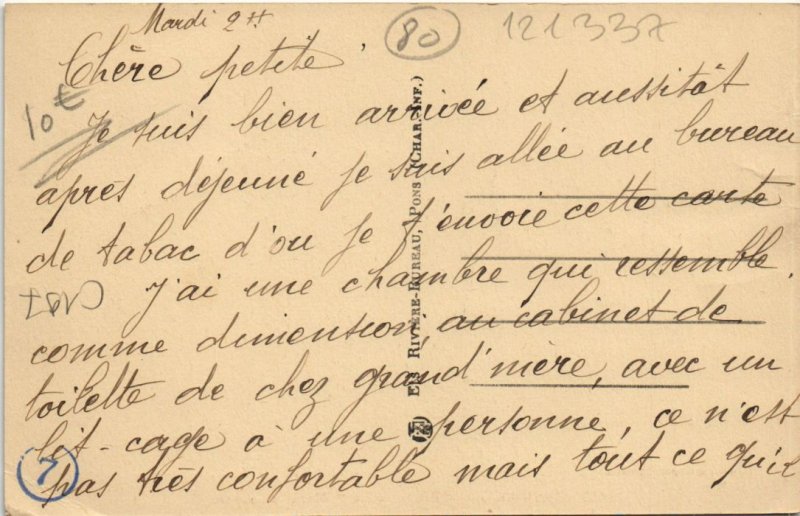 Mardi 2 H
80
121337
Chère petite
10€
Je suis bien arrivée et aussitôt
après déjeuné je suis allée au bureau
de tabac d'ou je t'envoie cette carte
J'ai une chambre qui ressemble
comme dimension, au cabinet de
toilette de chez grand'mère, avec un
lit-cage à une personne, ce n'est
pas très confortable mais tout ce qu'il
7
Ets RIVIÈRE-BUREAU, PONS (CHAR.-INF.)